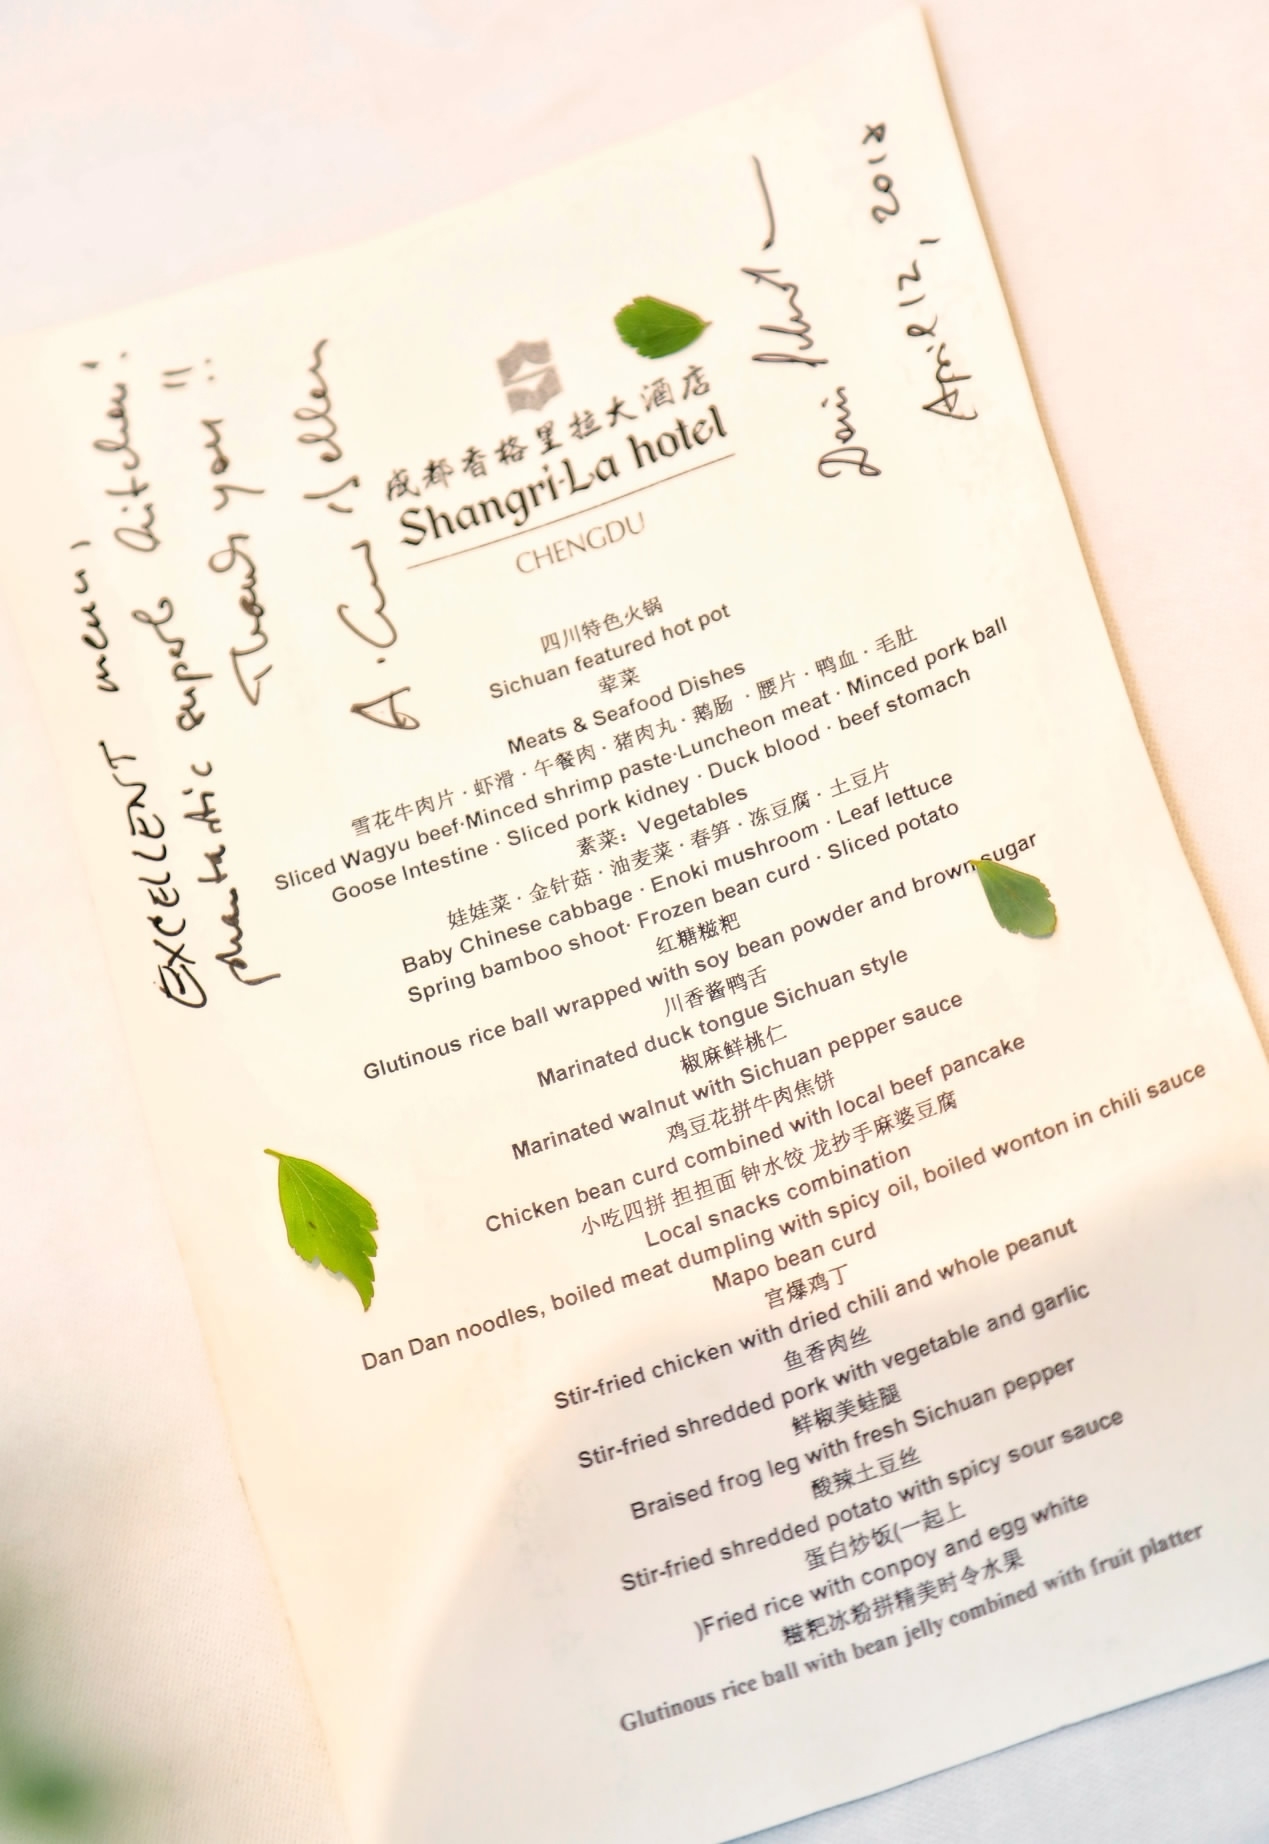 成都香格里拉大酒店
Shangri-La hotel
CHENGDU
四川特色火锅
Sichuan featured hot pot
荤菜
Meats & Seafood Dishes
雪花牛肉片 · 虾滑 · 午餐肉 · 猪肉丸 · 鹅肠 · 腰片 · 鸭血 · 毛肚
Sliced Wagyu beef·Minced shrimp paste·Luncheon meat · Minced pork ball
Goose Intestine · Sliced pork kidney · Duck blood · beef stomach
素菜：Vegetables
娃娃菜 · 金针菇 · 油麦菜 · 春笋 · 冻豆腐 · 土豆片
Baby Chinese cabbage · Enoki mushroom · Leaf lettuce
Spring bamboo shoot· Frozen bean curd · Sliced potato
红糖糍粑
Glutinous rice ball wrapped with soy bean powder and brown sugar
川香酱鸭舌
Marinated duck tongue Sichuan style
椒麻鲜桃仁
Marinated walnut with Sichuan pepper sauce
鸡豆花拼牛肉焦饼
Chicken bean curd combined with local beef pancake
小吃四拼 担担面 钟水饺 龙抄手麻婆豆腐
Local snacks combination
Dan Dan noodles, boiled meat dumpling with spicy oil, boiled wonton in chili sauce
Mapo bean curd
宫爆鸡丁
Stir-fried chicken with dried chili and whole peanut
鱼香肉丝
Stir-fried shredded pork with vegetable and garlic
鲜椒美蛙腿
Braised frog leg with fresh Sichuan pepper
酸辣土豆丝
Stir-fried shredded potato with spicy sour sauce
蛋白炒饭(一起上
)Fried rice with conpoy and egg white
糍粑冰粉拼精美时令水果
Glutinous rice ball with bean jelly combined with fruit platter
EXCELLENT menu,
phantastic superb kitchen!
Thank you !!
April 12, 2018